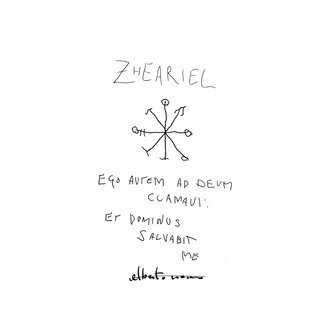 ZHEARIEL
EGO AUTEM AD DEUM
CLAMAUI:
ET DOMINUS
SALVABIT
ME